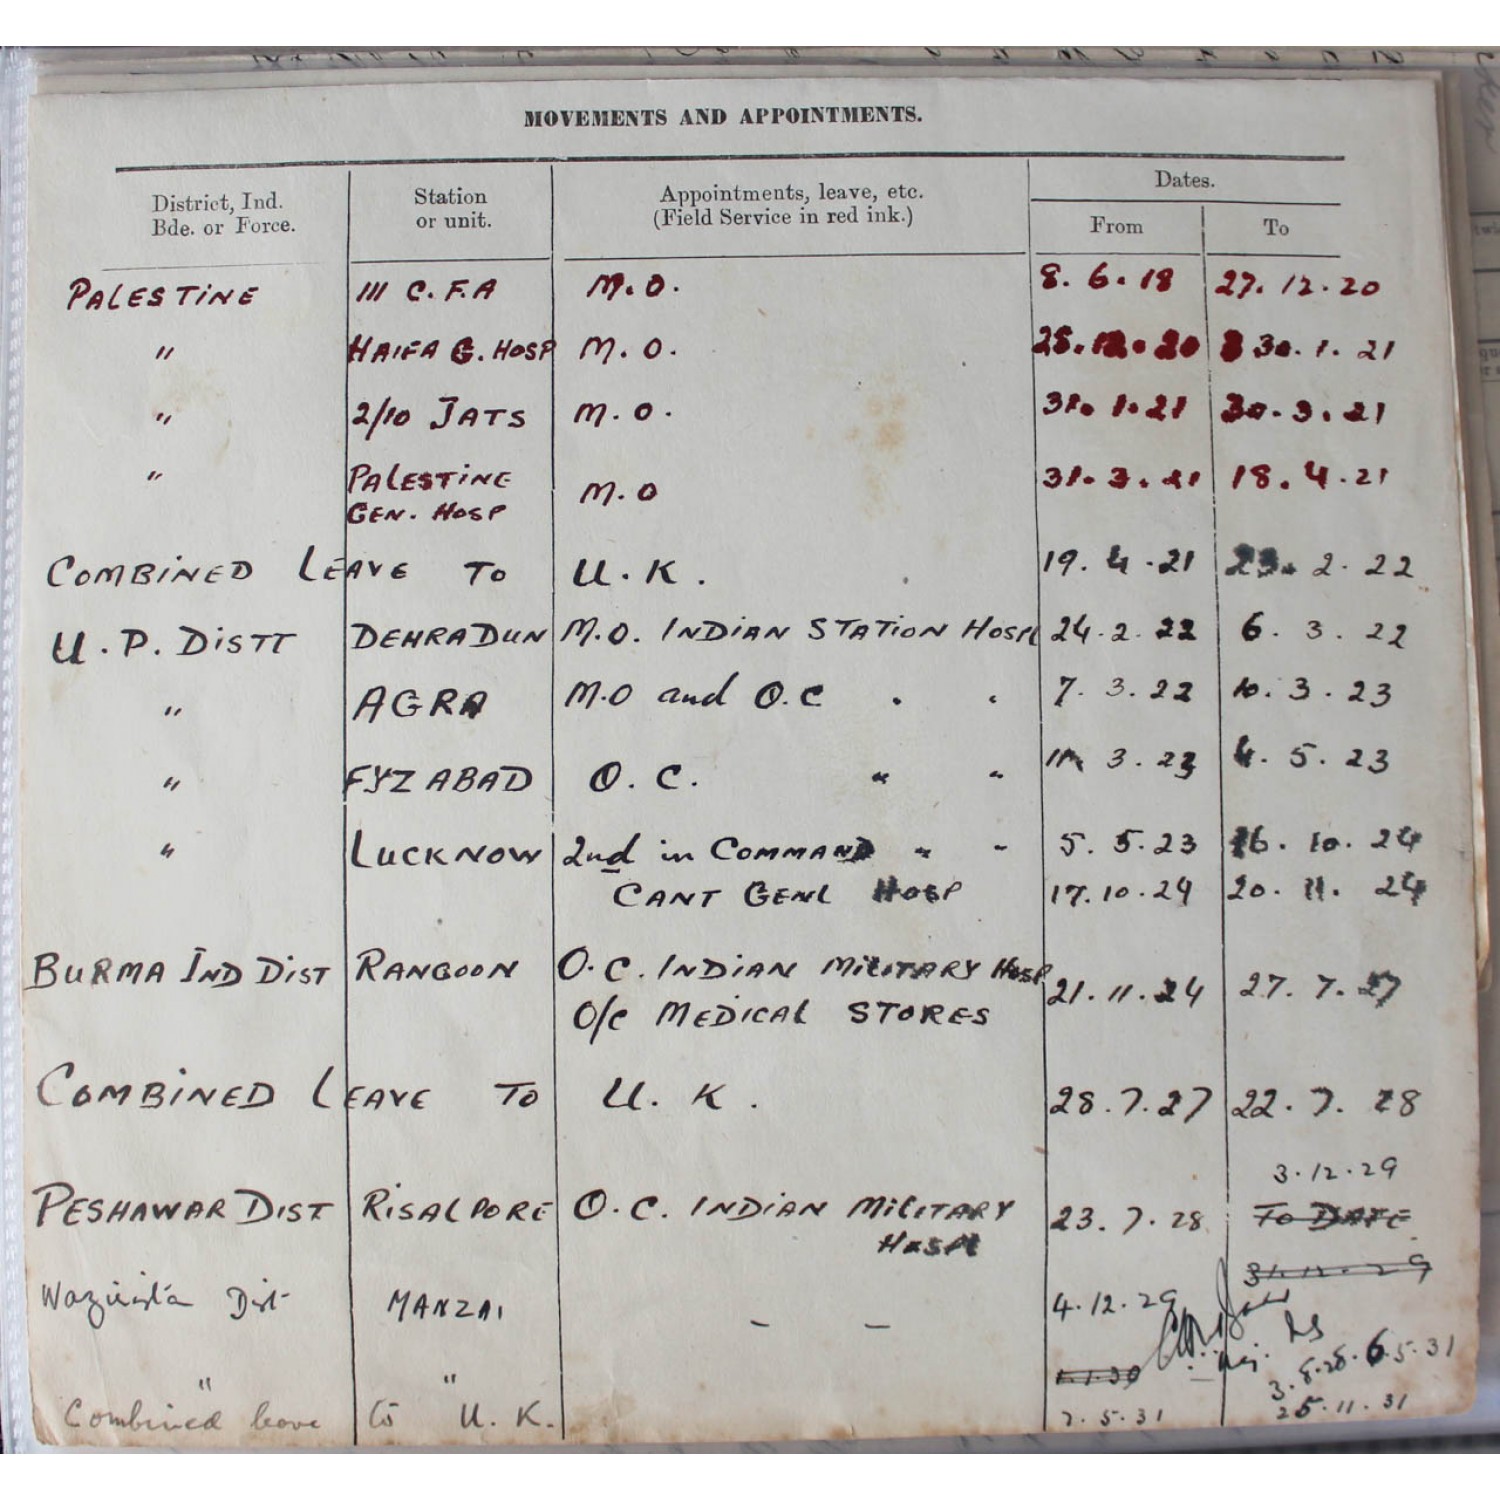 MOVEMENTS AND APPOINTMENTS.
District, Ind. Bde. or Force. Station or unit. Appointments, leave, etc. (Field Service in red ink.) Dates. From To
PALESTINE 111 C.F.A M.O. 8.6.18 27.12.20
" HAIFA G. HOSP M.O. 28.12.20 30.1.21
" 2/10 JATS M.O. 31.1.21 30.3.21
" PALESTINE M.O 31.3.21 18.4.21
GEN. HOSP
COMBINED LEAVE TO U.K. 19.4.21 23.2.22
U.P. DISTT DEHRADUN M.O. INDIAN STATION HOSPL 24.2.22 6.3.22
" AGRA M.O and O.C " " 7.3.22 10.3.23
" FYZABAD O.C. " " 11.3.23 4.5.23
" LUCKNOW 2nd in COMMAND " " 5.5.23 16.10.24
CANT GENL HOSP 17.10.24 20.11.24
BURMA IND DIST RANGOON O.C. INDIAN MILITARY HOSP 21.11.24 27.7.27
O/C MEDICAL STORES
COMBINED LEAVE TO U.K. 28.7.27 22.7.28
3.12.29
PESHAWAR DIST RISALPORE O.C. INDIAN MILITARY 23.7.28 TO DATE
HOSPL
31.12.29
Waziristan Dist MANZAI — — 4.12.29
Maj. IMS
" " 1.1.30 6.5.31
3.8.28.
Combined leave to U.K. 7.5.31 25.11.31